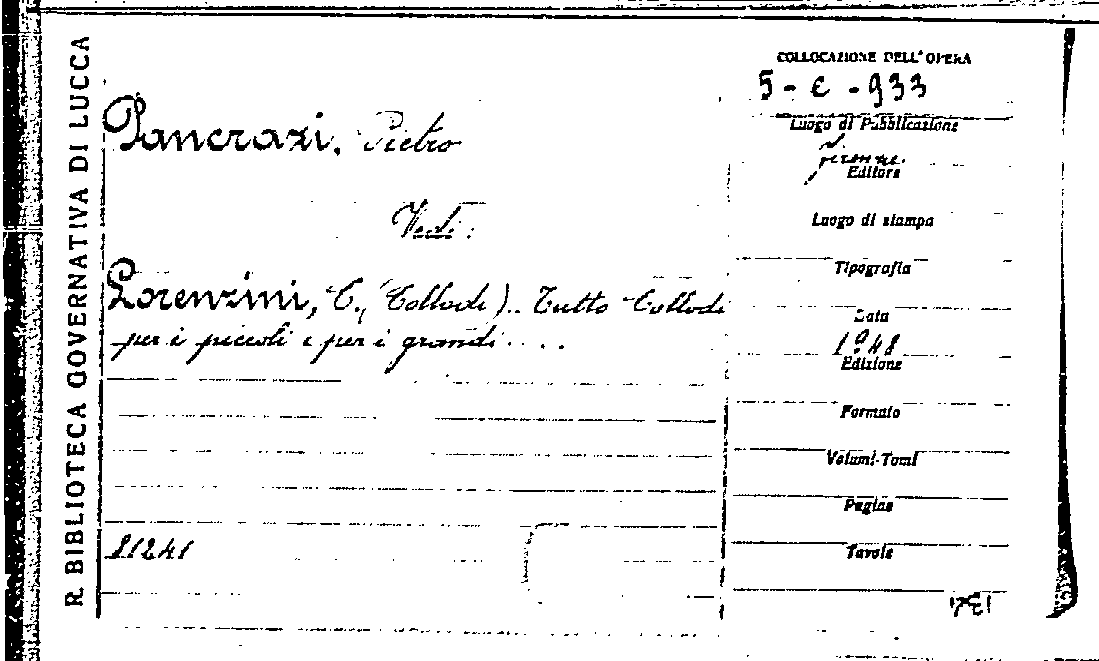 R. BIBLIOTECA GOVERNATIVA DI LUCCA
Pancrazi, Pietro
Vedi:
Lorenzini, C. (Collodi).. Tutto Collodi
per i piccoli e per i grandi....
21241
COLLOCAZIONE DELL'OPERA
5 - E - 933
Luogo di Pubblicazione
Firenze.
Editore
Luogo di stampa
Tipografia
Data
1948
Edizione
Formato
Volumi-Tomi
Pagine
Tavole